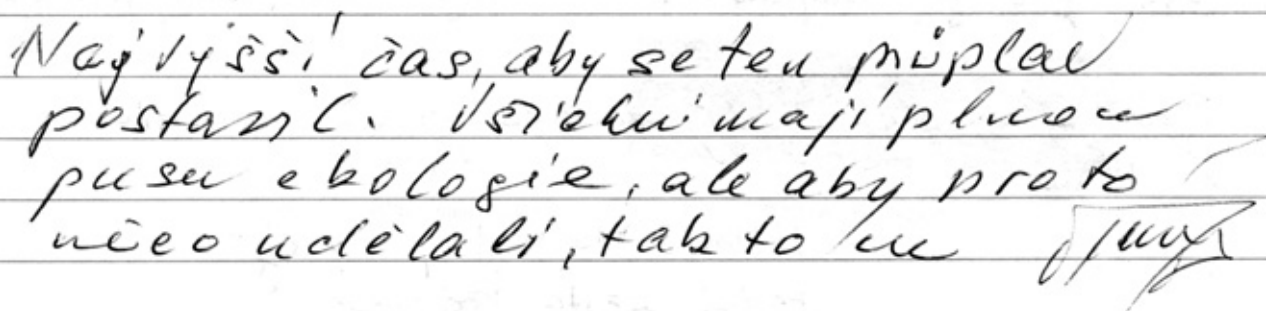 Nejvyšší čas, aby se ten průplav
postavil. Všichni mají plnou
pusu ekologie, ale aby pro to
něco udělali, tak to ne